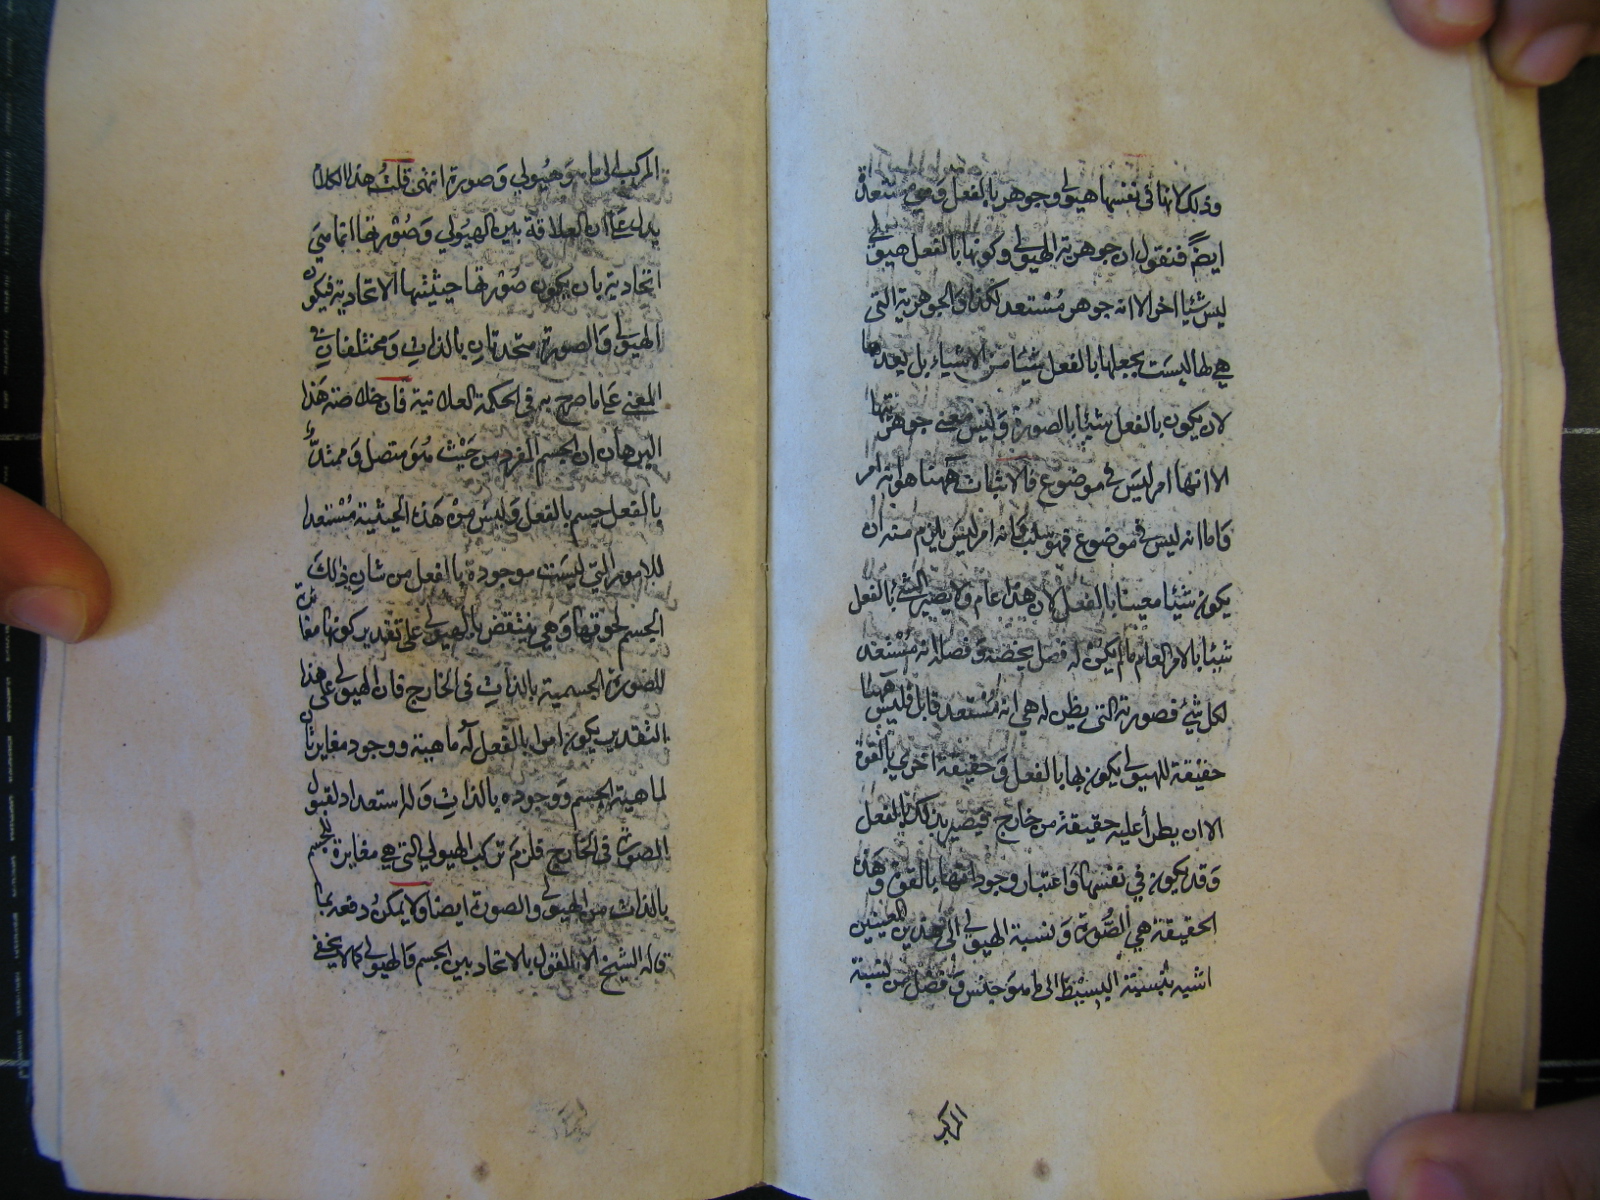 وذلك لانها في نفسها هيولى وجوهر بالفعل وهي مستعدة
ايضً فنقول ان جوهرية الهيولى وكونها بالفعل هيولى
ليس شيئا اخر الا انه جوهر مُستعد لكذا والجوهرية التي
هي لها ليست يجعلها بالفعل شيئا من الاشياء بل يعدها
لان يكون بالفعل شيئا بالصورة وليس معنى جوهريتها
الا انها امر ليس في موضوع فالاثبات ههنا هو انه امر
واما انه ليس في موضوع فهو سلب وانه امر ليس يلزم منه ان
يكون شيئا معينا بالفعل لان هذا عام ولا يصير الشئ بالفعل
شيئا بالامر العام ما لم يكن له فصل يخصه وفصله انه مُستعد
لكل شئ فصورته التي يظن له هي انه مُستعد قابل فليس ههنا
حقيقة للهيولى يكون بها بالفعل وحقيقة اخرى بالقوة
الا ان يطرأ عليه حقيقة من خارج فيصير بذلك بالفعل
وقد يكون في نفسها واعتبار وجود ذاتها بالقوة وهذه
الحقيقة هي الصُورة ونسبة الهيولى الى هذين المعنيين
اشبه بنسبة البسيط الى ما هو جنس وفصل من نسبة
المركب
المركب الى ما هو هيُولي وصورة انتهى قلتُ هذا الكلام
يدل على ان العلاقة بين الهيولي وصُورتها انما هي
اتحادية بان يكون صُورتها حيثيتها الاتحادية فيكون
الهيولى والصورة متحدتان بالذات ومختلفتان في
المعنى على ما صرح به في الحكمة العلائية فان خلاصة هذا
البرهان ان الجسم المفرد من حَيْث هُو متصل وممتدٌّ
بالفعل جسم بالفعل وليس من هذه الحيثية مُستعدا
للامور التي ليست موجودة بالفعل من شان ذلك
الجسم لحوقها وهي منتقض بالهيولى على تقدير كونها مغايرة
للصورة الجسمية بالذات في الخارج فان الهيولى على هذا
التقدير يكون امرا بالفعل له ماهية ووجود مغايرتان
لماهية الجسم ووجوده بالذات وله استعداد لقبول
الصورة في الخارج فلزم تركب الهيولي التي هي مغايرة للجسم
بالذات من الهيولى والصورة ايضا ولا يمكنُ دفعه بما
قاله الشيخ الا بالقول بالاتحاد بين الجسم والهيولى كما لا يخفى